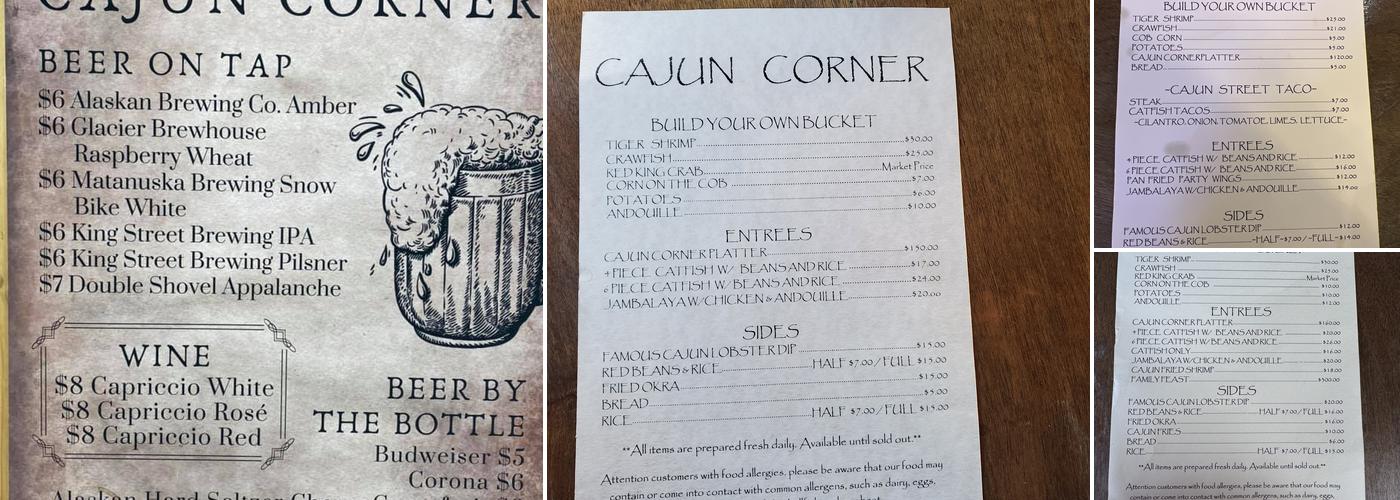 CAJUN CORNER
BEER ON TAP
$6 Alaskan Brewing Co. Amber
$6 Glacier Brewhouse
Raspberry Wheat
$6 Matanuska Brewing Snow
Bike White
$6 King Street Brewing IPA
$6 King Street Brewing Pilsner
$7 Double Shovel Appalanche
WINE
$8 Capriccio White
$8 Capriccio Rosé
$8 Capriccio Red
BEER BY
THE BOTTLE
Budweiser $5
Corona $6
CAJUN CORNER
BUILD YOUR OWN BUCKET
TIGER SHRIMP $30.00
CRAWFISH $25.00
RED KING CRAB Market Price
CORN ON THE COB $7.00
POTATOES $6.00
ANDOUILLE $10.00
ENTREES
CAJUN CORNER PLATTER $150.00
4 PIECE CATFISH W/ BEANS AND RICE $17.00
6 PIECE CATFISH W/ BEANS AND RICE $24.00
JAMBALAYA W/CHICKEN & ANDOUILLE $20.00
SIDES
FAMOUS CAJUN LOBSTER DIP $15.00
RED BEANS & RICE HALF $7.00 / FULL $15.00
FRIED OKRA $15.00
BREAD $5.00
RICE HALF $7.00 / FULL $15.00
**All items are prepared fresh daily. Available until sold out.**
Attention customers with food allergies, please be aware that our food may
contain or come into contact with common allergens, such as dairy, eggs,
BUILD YOUR OWN BUCKET
TIGER SHRIMP $25.00
CRAWFISH $21.00
COB CORN $5.00
POTATOES $5.00
CAJUN CORNER PLATTER $120.00
BREAD $5.00
~CAJUN STREET TACO~
STEAK $7.00
CATFISH TACOS $7.00
~CILANTRO, ONION, TOMATOE, LIMES, LETTUCE~
ENTREES
4 PIECE CATFISH W/ BEANS AND RICE $12.00
6 PIECE CATFISH W/ BEANS AND RICE $16.00
PAN FRIED PARTY WINGS $12.00
JAMBALAYA W/CHICKEN & ANDOUILLE $14.00
SIDES
FAMOUS CAJUN LOBSTER DIP $12.00
RED BEANS & RICE ~HALF~$7.00/~FULL~$14.00
TIGER SHRIMP $30.00
CRAWFISH $25.00
RED KING CRAB Market Price
CORN ON THE COB $10.00
POTATOES $10.00
ANDOUILLE $12.00
ENTREES
CAJUN CORNER PLATTER $160.00
4 PIECE CATFISH W/ BEANS AND RICE $20.00
6 PIECE CATFISH W/ BEANS AND RICE $26.00
CATFISH ONLY $16.00
JAMBALAYA W/CHICKEN & ANDOUILLE $20.00
CAJUN FRIED SHRIMP $18.00
FAMILY FEAST $300.00
SIDES
FAMOUS CAJUN LOBSTER DIP $20.00
RED BEANS & RICE HALF $7.00 / FULL $16.00
FRIED OKRA $16.00
CAJUN FRIES $10.00
BREAD $6.00
RICE HALF $7.00 / FULL $15.00
**All items are prepared fresh daily. Available until sold out.**
Attention customers with food allergies, please be aware that our food may
contain or come into contact with common allergens, such as dairy, eggs,